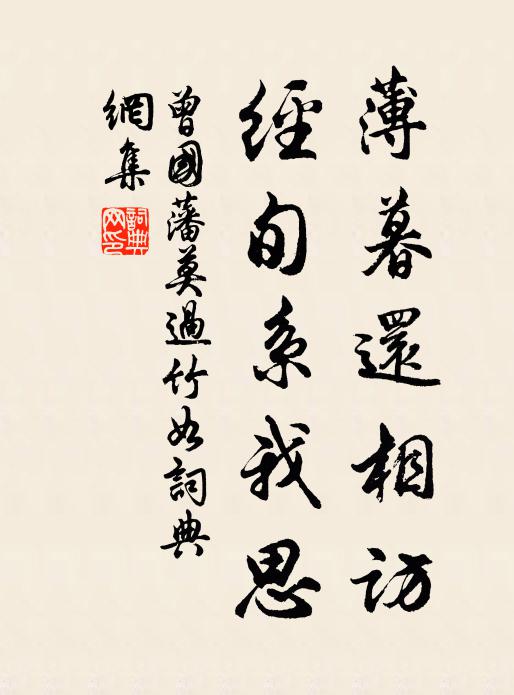 薄暮還相訪
經旬系我思
曾國藩莫過竹如詞典
網集
詞典網印